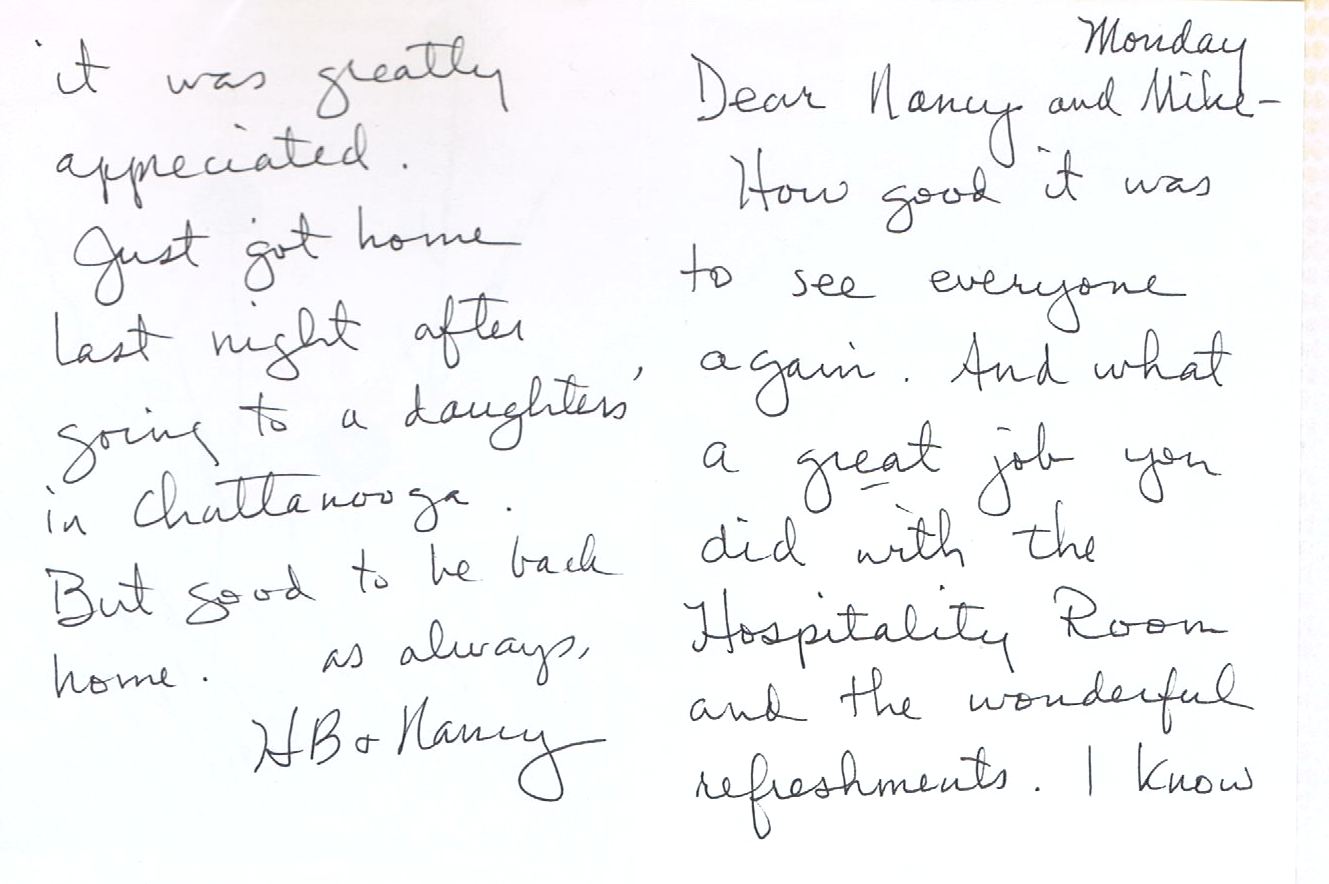 Monday
Dear Nancy and Mike-
How good it was
to see everyone
again. And what
a great job you
did with the
Hospitality Room
and the wonderful
refreshments. I know
it was greatly
appreciated.
Just got home
last night after
going to a daughters'
in Chattanooga.
But good to be back
home. as always,
HB & Nancy